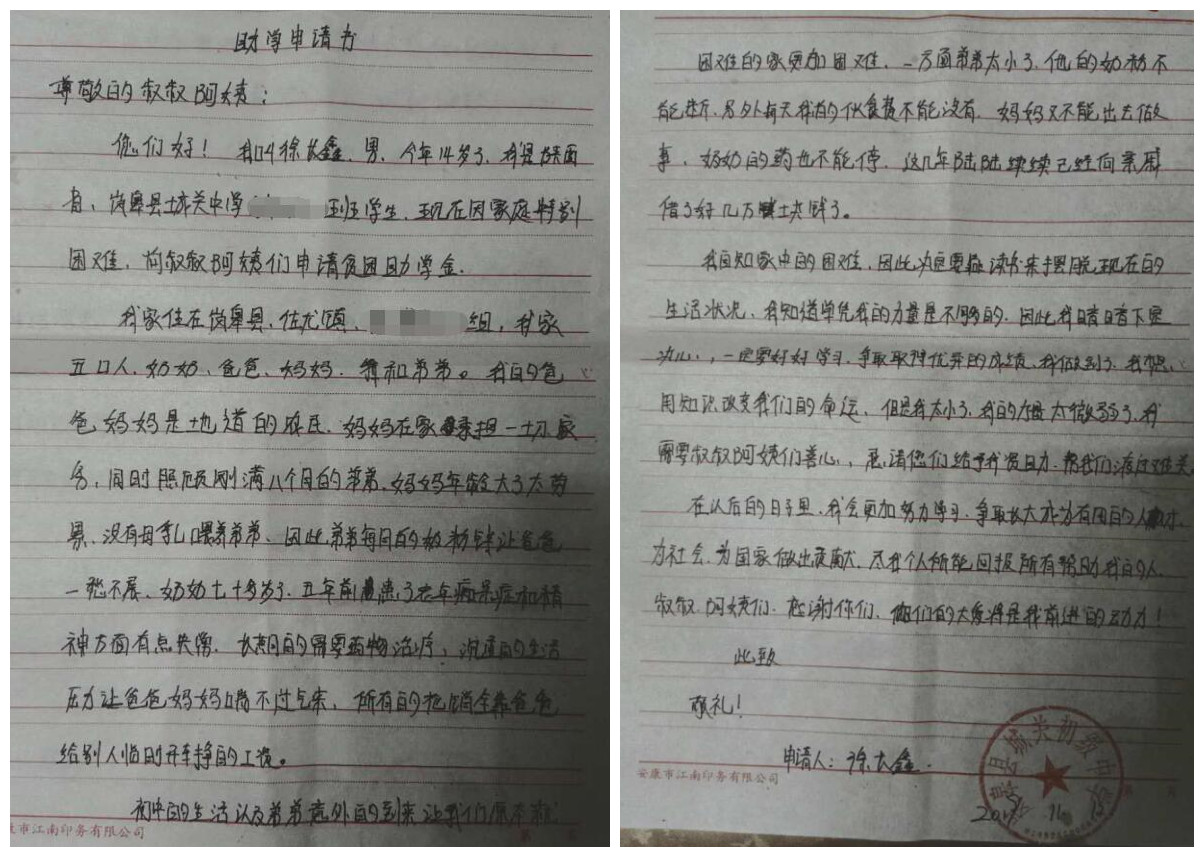 助学申请书
尊敬的叔叔阿姨：
您们好！我叫徐长鑫、男、今年14岁了、我是陕西
省、岚皋县城关中学 班学生、现在因家庭特别
困难，向叔叔阿姨们申请贫困助学金.
我家住在岚皋县、佐龙镇、 组，我家
五口人、奶奶、爸爸、妈妈、我和弟弟。我的爸
爸妈妈是地道的农民、妈妈在家承担一切家
务，同时照顾刚满八个月的弟弟、妈妈年龄大了太劳
累、没有母乳喂养弟弟、因此弟弟每日的奶粉钱让爸爸
一愁不展、奶奶七十多岁了.五年前患了老年病呆症和精
神方面有点失常.长期的需要药物治疗，沉重的生活
压力让爸爸妈妈喘不过气来，所有的花销全靠爸爸
给别人临时开车挣的工资。
初中的生活以及弟弟意外的到来让我们原本就
困难的家更加困难，一方面弟弟太小了、他的奶粉不
能断、另外每天我的伙食费不能没有、妈妈又不能出去做
事、奶奶的药也不能停，这几年陆陆续续已经向亲朋
借了好几万块钱了。
我自知家中的困难，因此决定要读书来摆脱现在的
生活状况、我知道单凭我的力量是不够的、因此我暗暗下定
决心，一定要好好学习、争取取得优异的成绩、我做到了、我想
用知识改变我们的命运，但是我太小了、我的力量太微弱了、我
需要叔叔阿姨们善心，恳请您们给予我资助、帮我们渡过难关
在以后的日子里、我会更加努力学习、争取长大成为有用的人才.
为社会、为国家做出贡献、尽我个人所能回报所有帮助我的人
叔叔、阿姨们、感谢你们、您们的大爱将是我前进的动力！
此致
敬礼！
申请人：徐长鑫.
安康市江南印务有限公司
康市江南印务有限公司
岚皋县城关初级中学